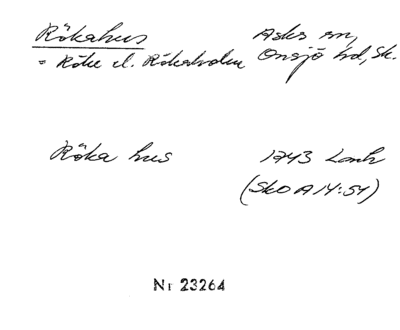 Rökahus Asks sn,
= Röke el. Rökaholm Onsjö hd, Sk.
Röka hus 1743 Lmh
(Sko A 14:54)
Nr 23264